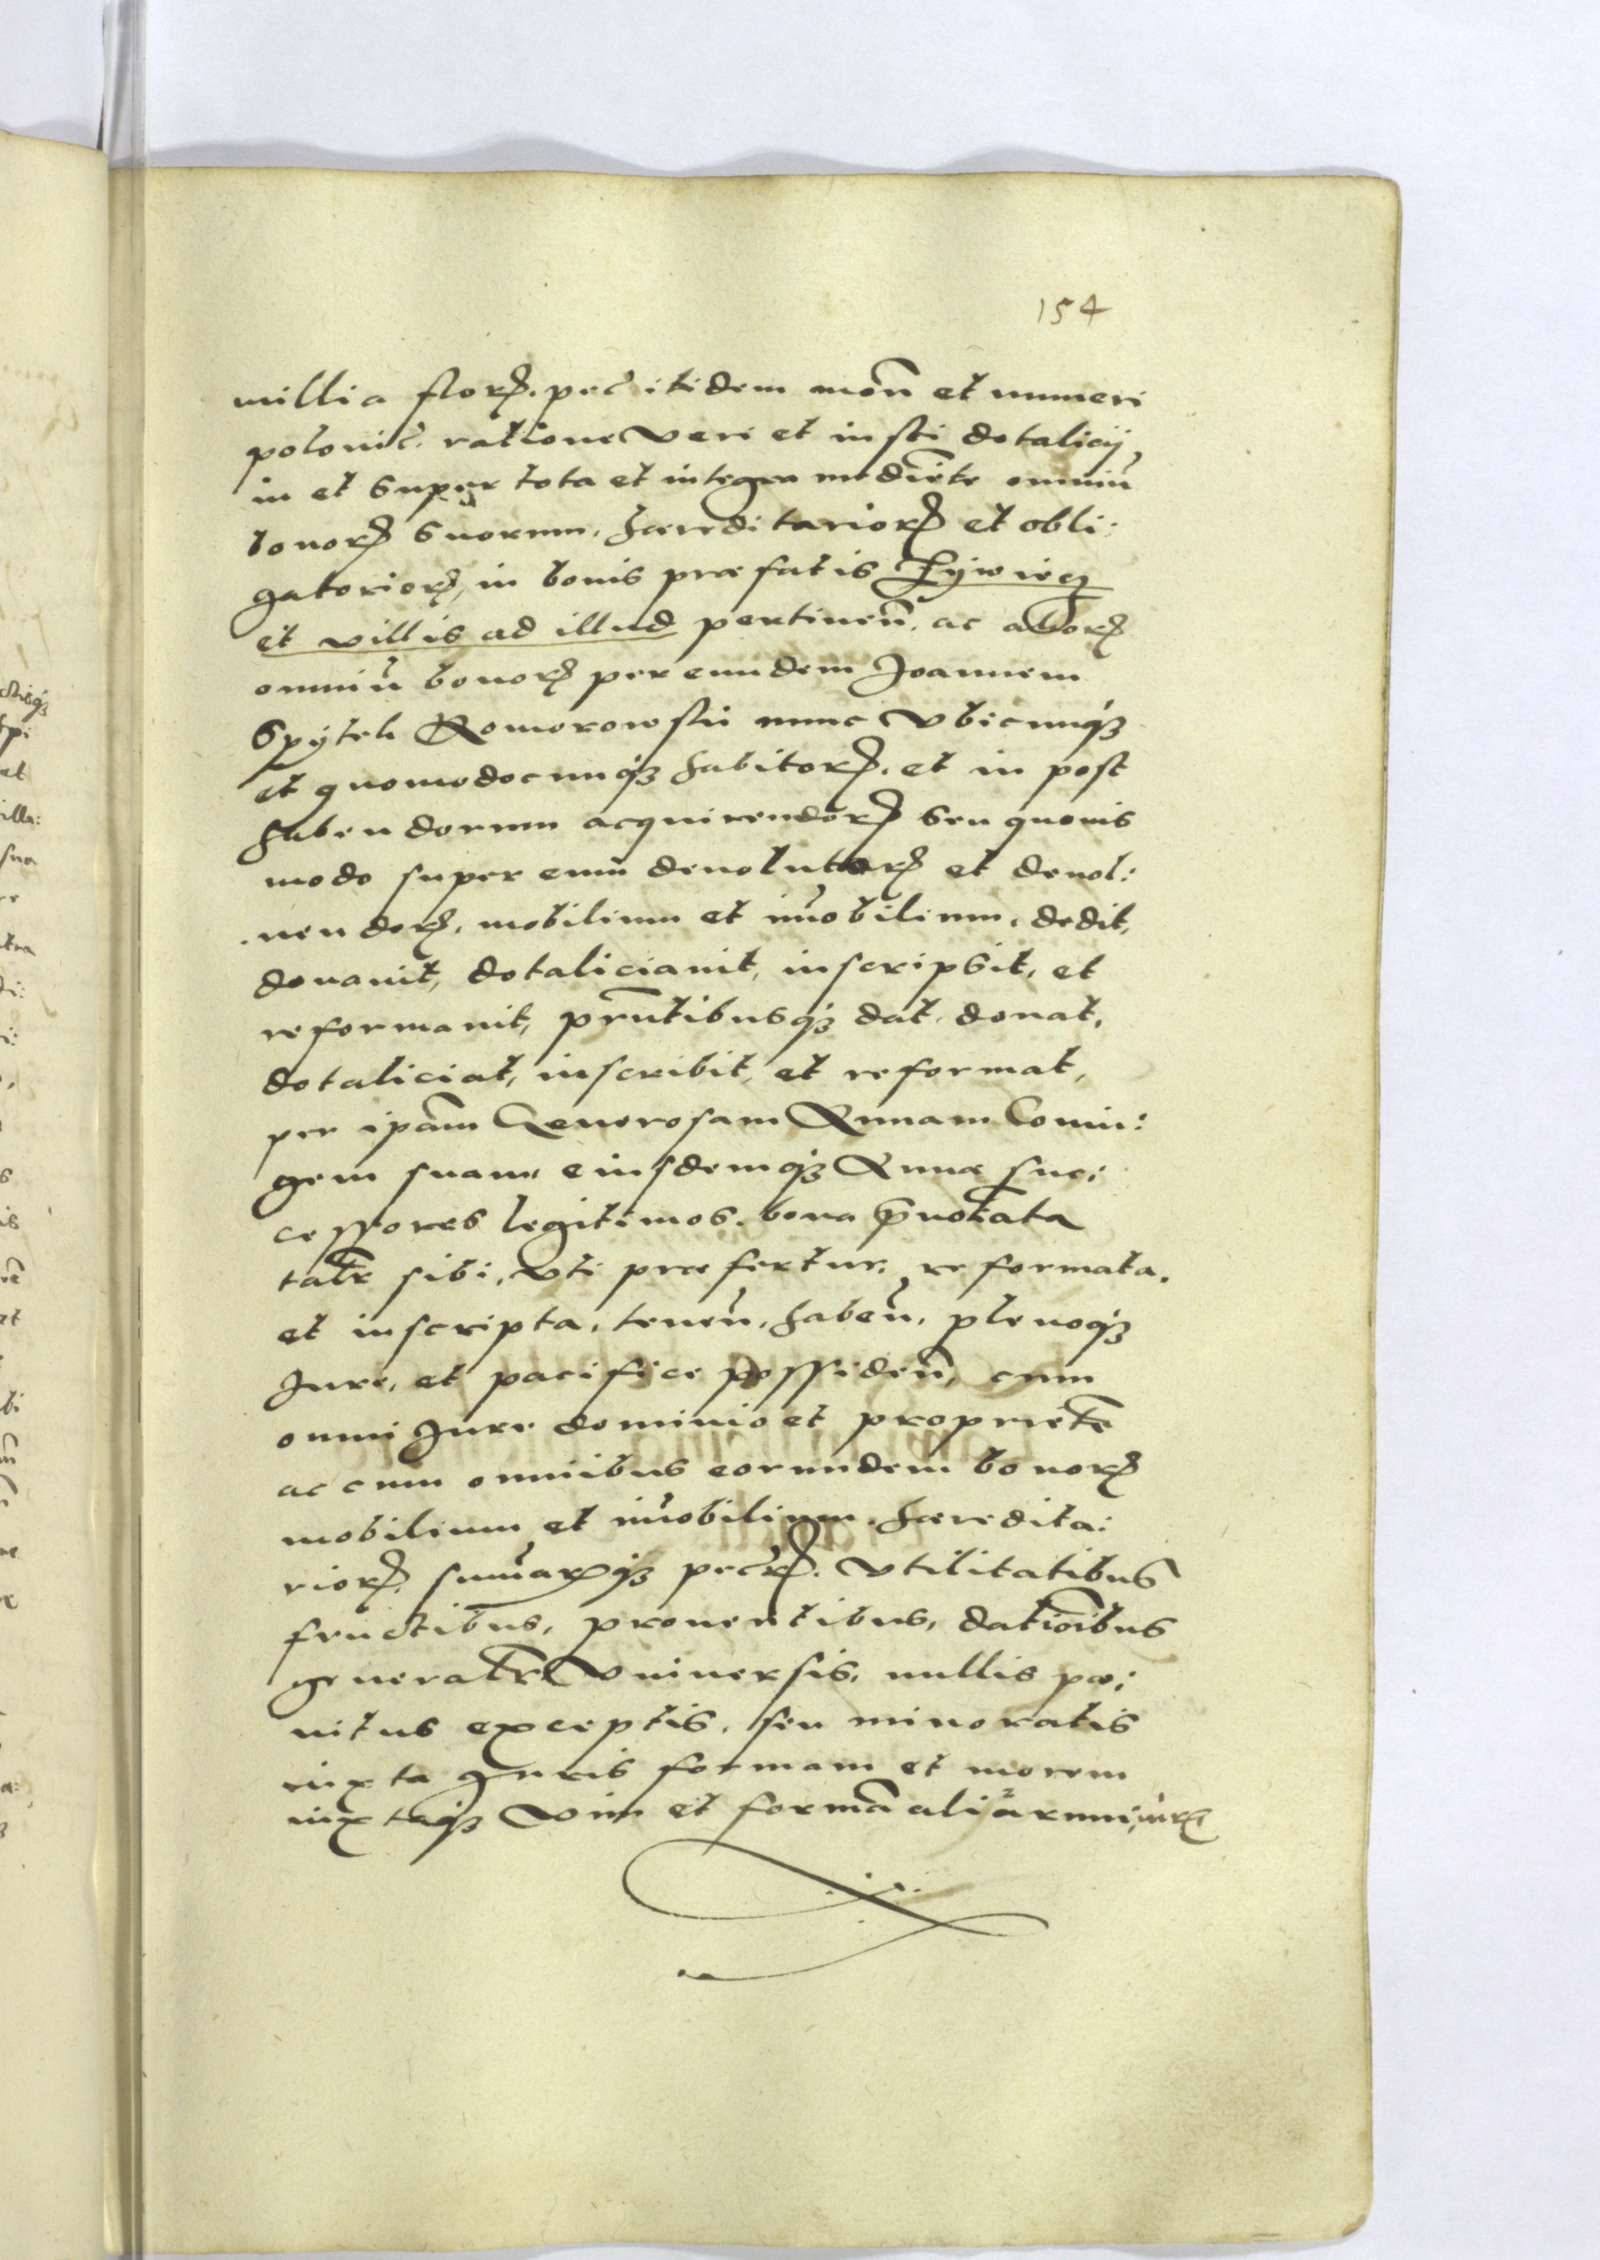 154
millia florꝝ. pec̃ itidem mon̄ et numeri
polonic̃. ratione veri et iusti dotalicij,
in et super tota et integra medietē omniū
bonorꝝ suorum, haereditariorꝝ et obli:
gatoriorꝝ, in bonis praefatis Zÿwiecz
et villis ad illud pertineñ. ac aliorꝝ
omniū bonorꝝ per eundem Joannem
Spÿtek Komorowskii nunc vbicunqꝫ
et quomodocunqꝫ habitorꝝ. et in post
habendorum acquirendorꝝ seu quouis
modo super eum deuolutorꝝ et deuol:
uendorꝝ, mobilium et im̄obilium, dedit,
donauit, dotaliciauit, inscripsit, et
reformauit, pñtibusqꝫ dat, donat,
dotaliciat, inscribit, et reformat,
per ipām Generosam Annam Coniu:
gem suam eiusdemqꝫ Annae suc:
cessores legitimos. bona p̄notata
talr̄ sibi, vti praefertur, reformata,
et inscripta, teneñ, habeñ, plenoqꝫ
Jure, et pacifice possideñ, cum
omni Jure dominio et proprietē
ac cum omnibus eorundem bonorꝝ
mobilium et im̄obilium, haeredita:
riorꝝ, sum̄arꝝqꝫ pec̃rꝝ. vtilitatibus
fructibus, prouentibus, dationibus
generalr̄ vniuersis, nullis pae:
nitus exceptis, seu minoratis
iuxta Juris formam et morem
iuxtaqꝫ vim et formā aliarum